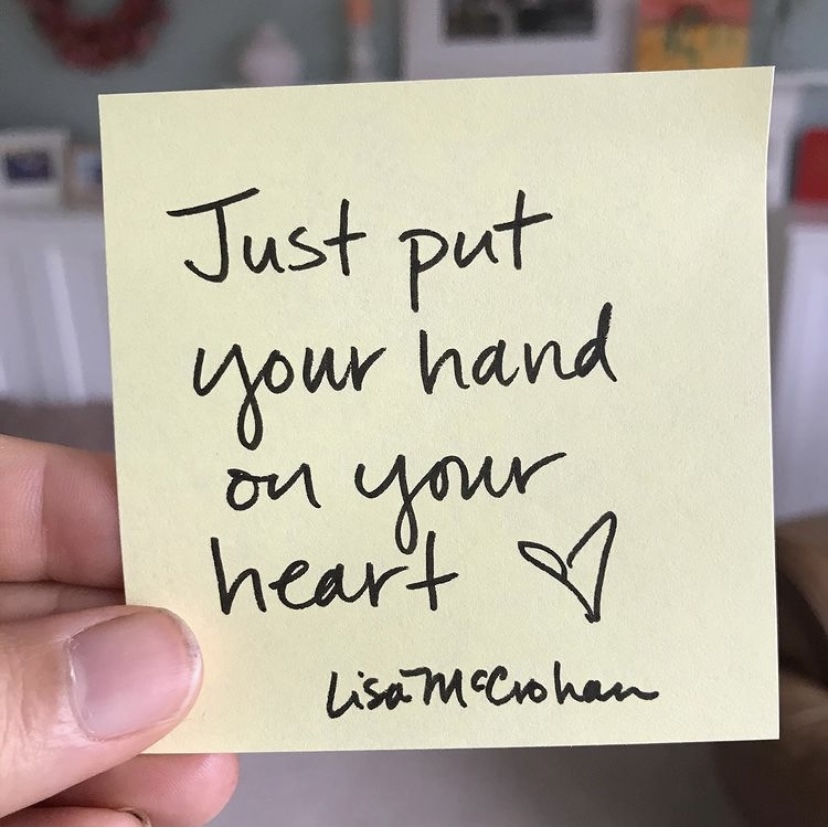 Just put
your hand
on your
heart
Lisa McCrohan